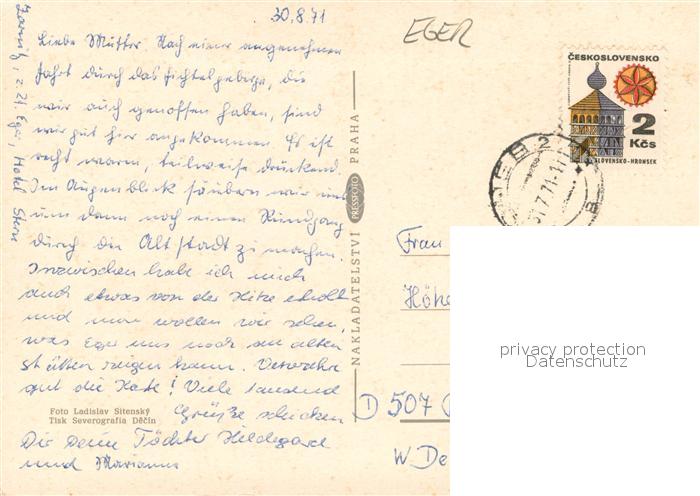 30.8.71
EGER
z. Zt. Eger, Hotel Stern
Liebe Mutter. Nach einer angenehmen
Fahrt durch das Fichtelgebirge, die
wir auch genossen haben, sind
wir gut hier angekommen. Es ist
recht warm, teilweise drückend.
Im Augenblick säubern wir uns
um dann noch einen Rundgang
durch die Altstadt zu machen.
Inzwischen habe ich mich
auch etwas von der Hitze erholt
und nun wollen wir sehen,
was Eger uns noch an alten
Stätten zeigen kann. Verwahre
gut die Karte! Viele tausend
Grüße schicken
Dir Deine Töchter Hildegard
und Marianne
Foto Ladislav Sitenský
Tisk Severografia Děčín
NAKLADATELSTVÍ PRESSFOTO PRAHA
ČESKOSLOVENSKO
2
Kčs
SLOVENSKO-HRONSEK
CHEB 2
31.7.71-11
Frau
Höhe
D 507
W. De
privacy protection
Datenschutz